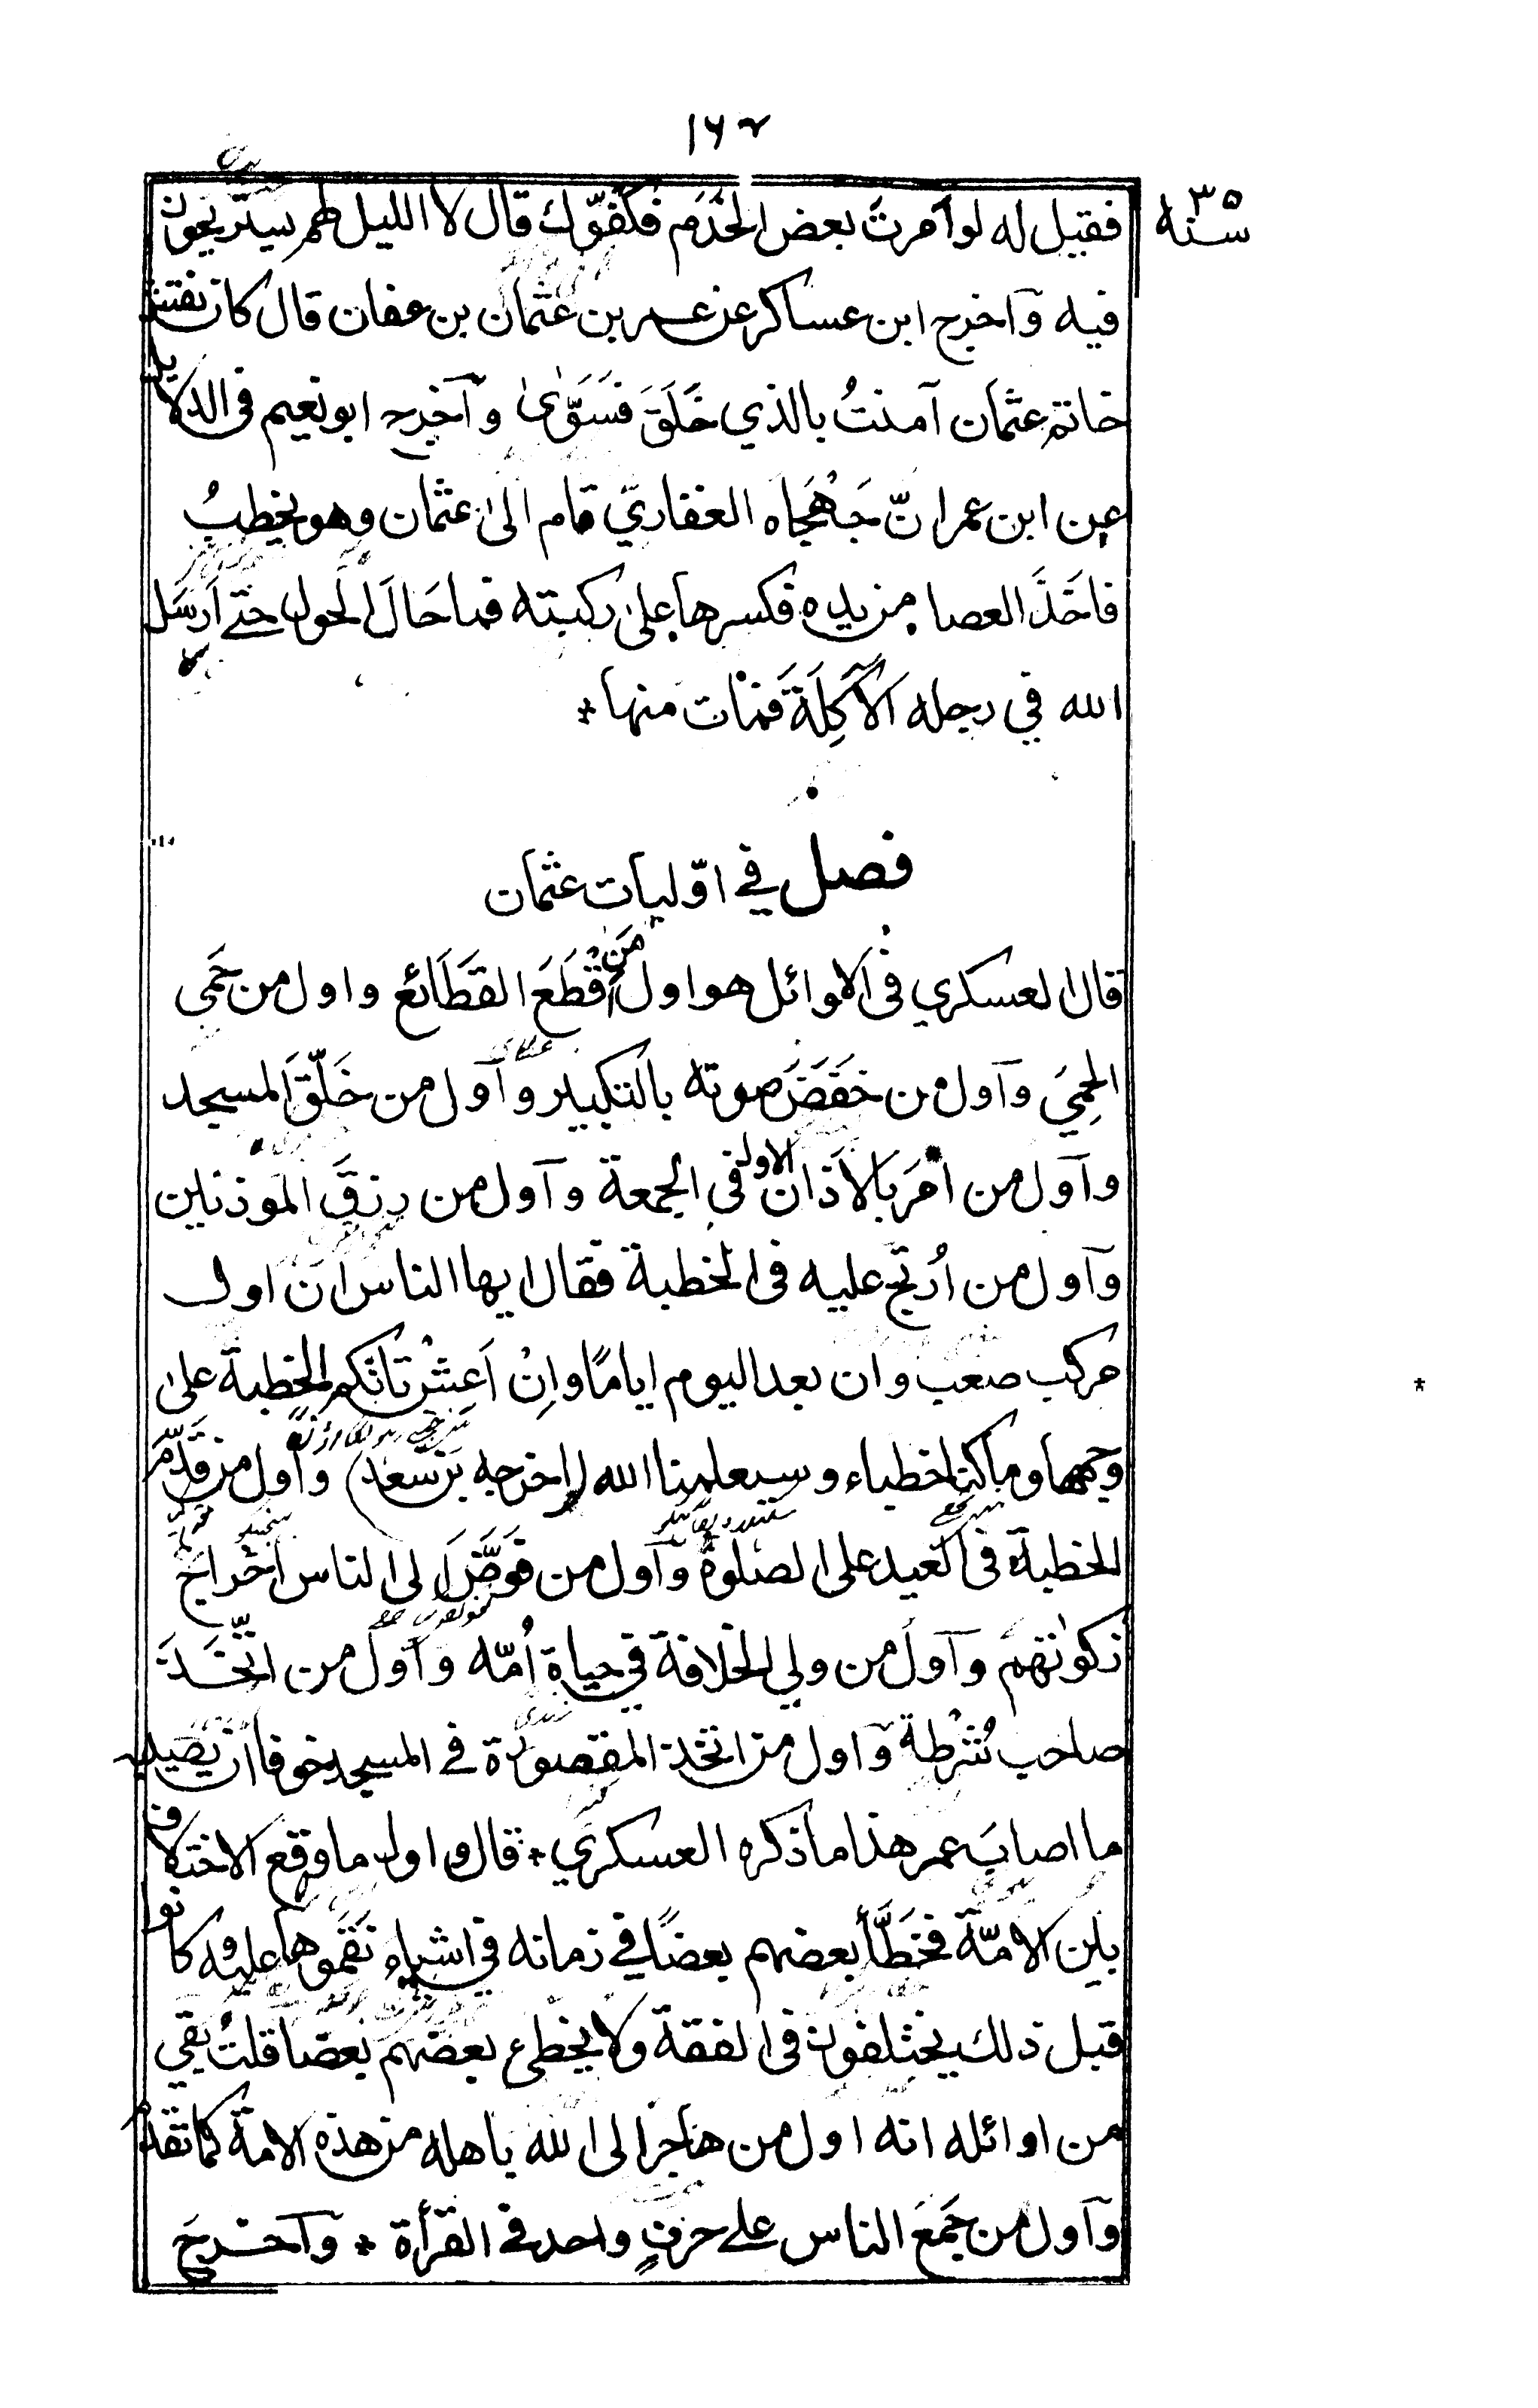 ١٦٢
سنه ٣٥
فقيل له لو أمرتَ بعض الخَدَم فكَفَوّك قال لا الليل لهم يستريحون
فيه وآخرج ابن عساكر عن عمر بن عثمان بن عفان قال كان نقش
خاتم عثمان آمنتُ بالذي خَلَقَ فَسَوّىٰ وآخرج ابو نعيم فى الدلايل
عن ابن عمر انّ جَهْجَاه الغفاريّ قام الىٰ عثمان وهو يخطبُ
فاَخَذَ العصا من يده فكسرها علىٰ ركبته فما حَالَ الحول حتے اَرسَل
الله في رجله الآكِلَةَ فمات منها *
فصل في اوّليات عثمان
قال العسكري فى الاوائل هو اول مَن أقْطَعَ القَطَائع واول من حَمَى
الحِمىَ وآول من خَفَضَ صوته بالتكبير وآول من خَلَّقَ المسجد
وآول من أمَرَ بالاَذان الاول فى الجمعة وآول من رزقَ المؤذنين
وآول من اُرتج عليه فى الخطبة فقال ايها الناس ان اول
مركب صعب وان بعد اليوم ايامًا واِنْ اَعِشْ تاتكم الخطبة علىٰ
وجهها وما كنا خطباء وسيعلمنا الله (اخرجه بن سعد) وآول من قَدَّمَ
الخطبة فى العيد على الصلوة وآول من فوَّضَ الى الناس اخراج
زكوٰتهم وآول من ولي الخلافة في حياة اُمّه وآول من اتّخَذَ
صاحب شُرْطة وآول من اتخذ المقصورة فے المسجد خوفا ان يصيبه
ما اصابَ عمر هذا ما ذكره العسكري * قال واول ما وقع الاختلاف
بين الامّة فخَطَّأ بعضهم بعضًا في زمانه في اشياء نَقَموها عليه وكانوا
قبل ذلك يختلفون فى الفقة ولا يخطئ بعضهم بعضا قلتُ بقي
من اوائله انه اول من هاجر الى الله باهله من هذه الامة كما تقدم
وآول من جَمَعَ الناس علے حرفٍ واحد فے القرأة * وآخرجَ